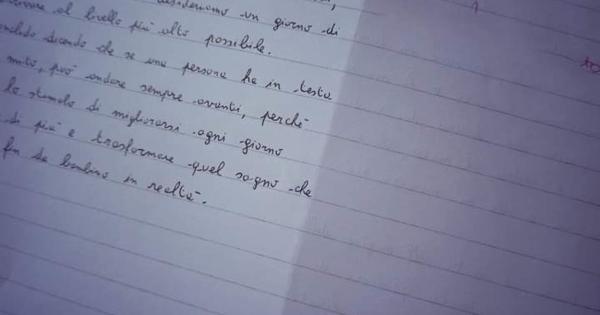 desideriamo un giorno di
al livello più alto possibile.
dicendo che se una persona ha in testa
può andare sempre avanti, perchè
lo stimolo di migliorarsi ogni giorno
di più e trasformare quel sogno che
fin da bambino in realtà.